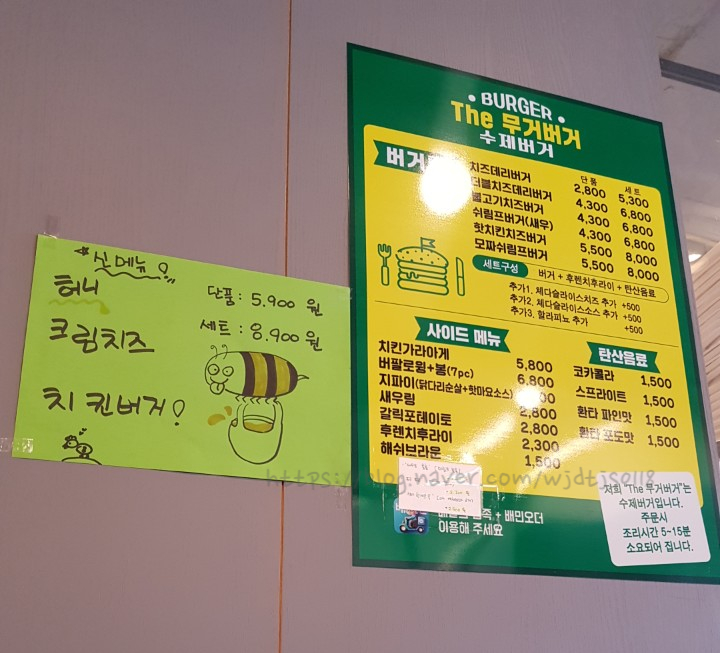 신메뉴!
허니
크림치즈
치킨버거!
단품: 5.900 원
세트: 8.900 원
• BURGER •
The 무거버거
수제버거
버거
단품 세트
치즈데리버거 2,800 5,300
더블치즈데리버거 4,300 6,800
불고기치즈버거 4,300 6,800
쉬림프버거(새우) 4,300 6,800
핫치킨치즈버거 5,500 8,000
모짜쉬림프버거 5,500 8,000
세트구성 버거 + 후렌치후라이 + 탄산음료
추가1. 체다슬라이스치즈 추가 +500
추가2. 체다슬라이스소스 추가 +500
추가3. 할라피뇨 추가 +500
사이드 메뉴
치킨가라아게 5,800
버팔로윙+봉(7pc) 6,800
지파이(닭다리순살+핫마요소스)
새우링 2,800
갈릭포테이토 2,800
후렌치후라이 2,300
해쉬브라운 1,500
탄산음료
코카콜라 1,500
스프라이트 1,500
환타 파인맛 1,500
환타 포도맛 1,500
+ 배민오더
이용해 주세요
저희 "The 무거버거"는
수제버거입니다.
주문시
조리시간 5~15분
소요되어 집니다.
https://blog.naver.com/wjdtjs0118